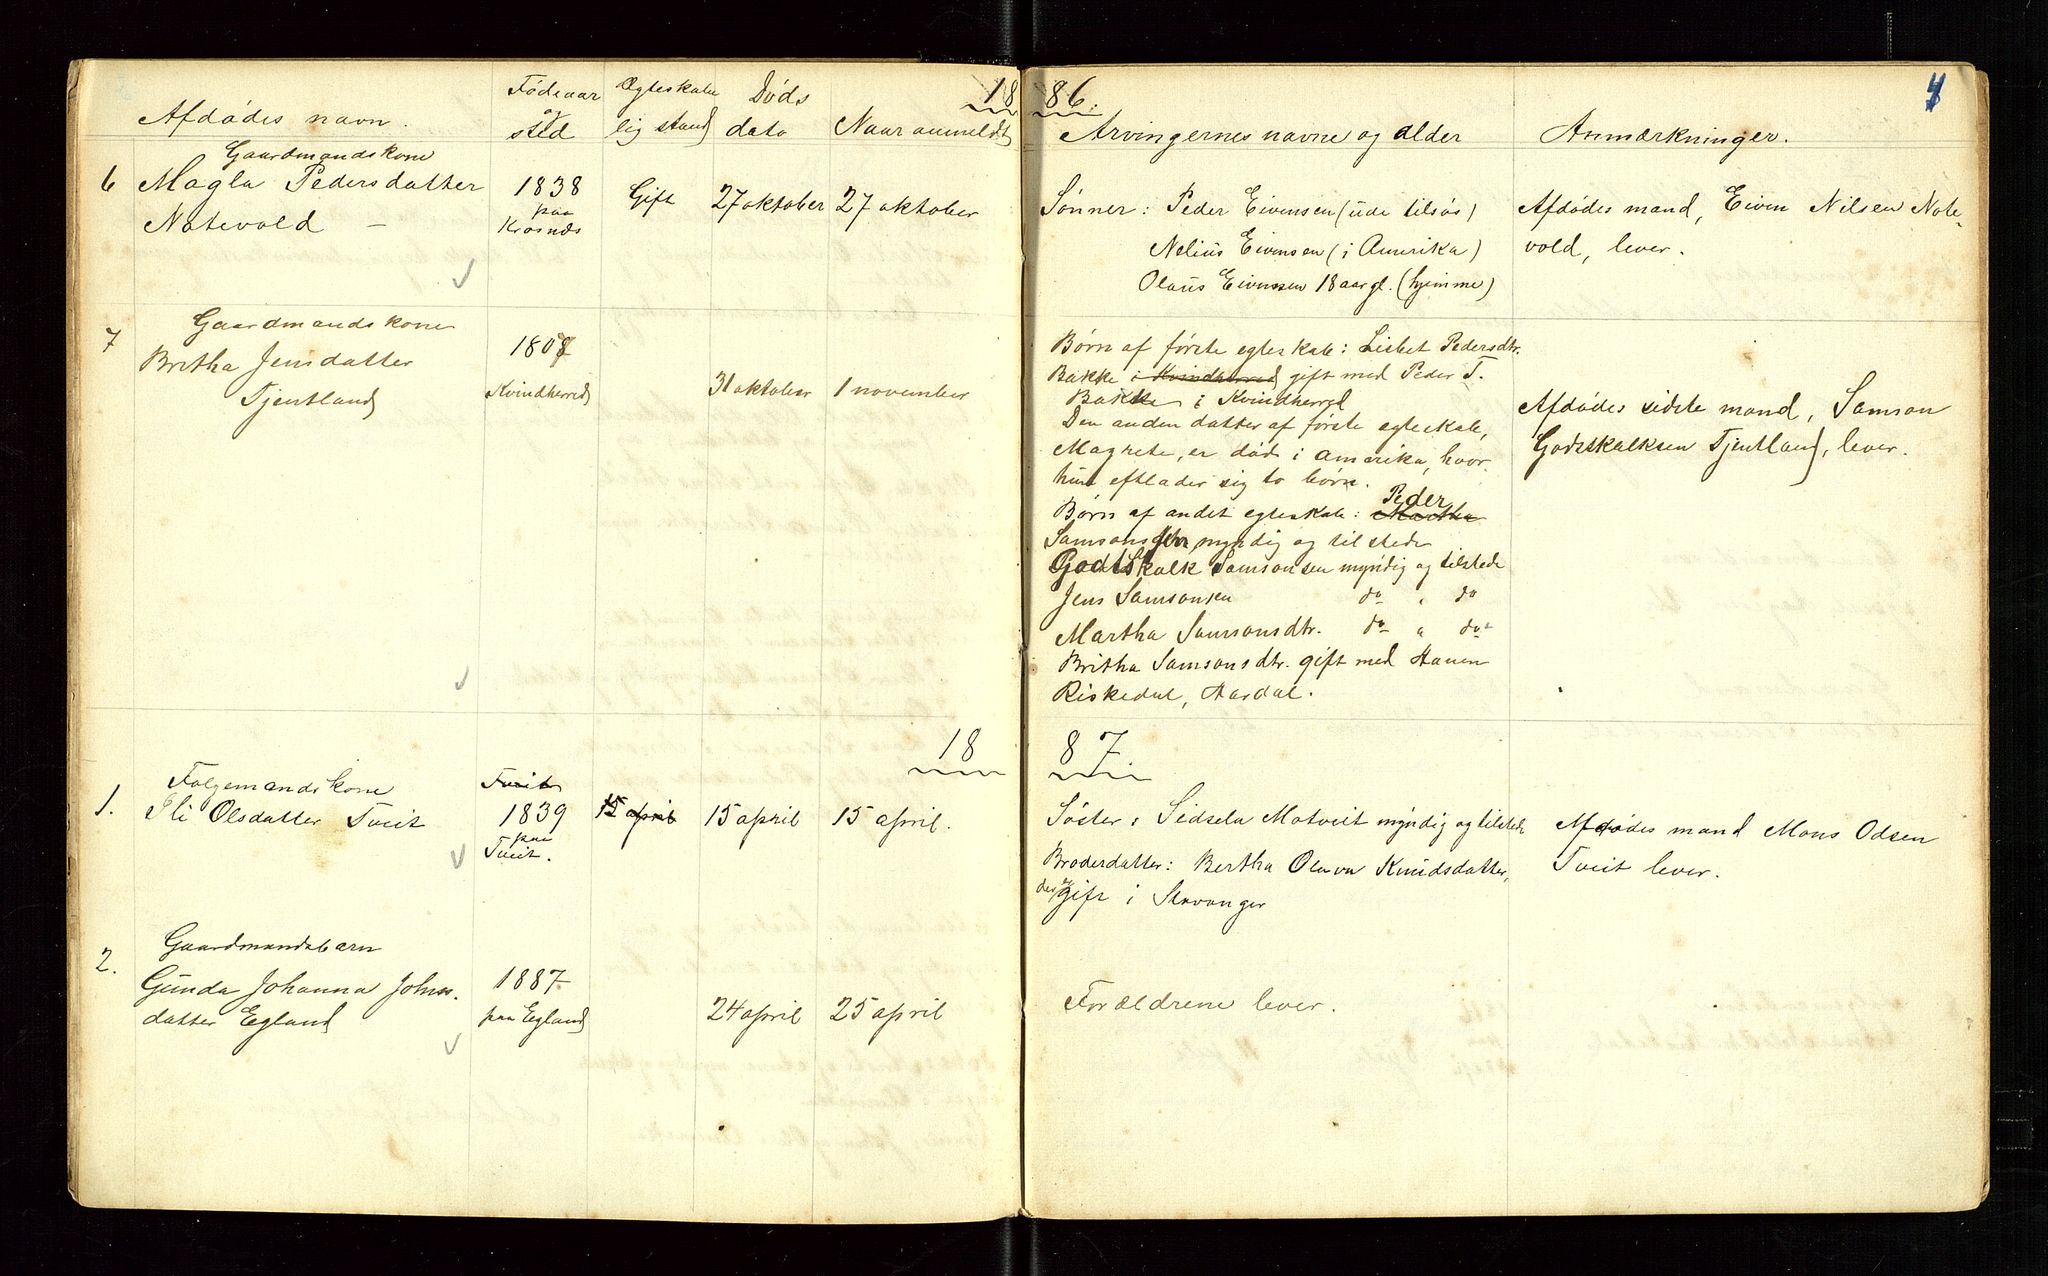 1886.
4
Afdødes navn.
Fødeaar og sted
Ægteskabelig stand
Døds dato
Naar anmeldt
Arvingernes navne og alder
Anmærkninger.
6
Gaardmandskone
Magla Pedersdatter
Notevold –
1838
paa
Krosnæs
Gift
27 oktober
27 oktober
Sønner: Peder Eivensen (ude tilsøs)
Nelius Eivensen (i Amerika)
Olaus Eivensen 18 aar gl. (hjemme)
Afdødes mand, Eiven Nilsen Note-
vold, lever.
7
Gaardmandskone
Britha Jensdatter
Tjentland
1807
Kvindherred
31 oktober
1 november
Børn af første egteskab: Lisbet Pedersdtr.
Bakke i Kvindherred gift med Peder T.
Bakke i Kvindherred
Den anden datter af første egteskab,
Magrete, er død i amerika, hvor
hun eftlader sig to børn.
Børn af andet egteskab: Martha Peder
Samsonsen myndig og tilstede
Godtskalk Samsonsen myndig og tilstede
Jens Samsonsen do " do
Martha Samsonsdtr. do " do
Britha Samsonsdtr. gift med
Riskedal, Aardal.
Afdødes sidste mand, Samson
Godskalksen Tjentland, lever.
1887.
1.
Folgemandskone
Ili Olsdatter Tveit
Tveit
1839
paa
Tveit.
15 april
15 april
15 april.
Søster: Sidsela Motveit myndig og tilstede
Broderdatter: Bertha Olava Knudsdatter,
gift i Stavanger
Afdødes mand Mons Odsen
Tveit lever.
2.
Gaardmandsbarn
Gunda Johanna Johns-
datter Egland
1887
paa Egland
24 april
25 april
Forældrene lever.